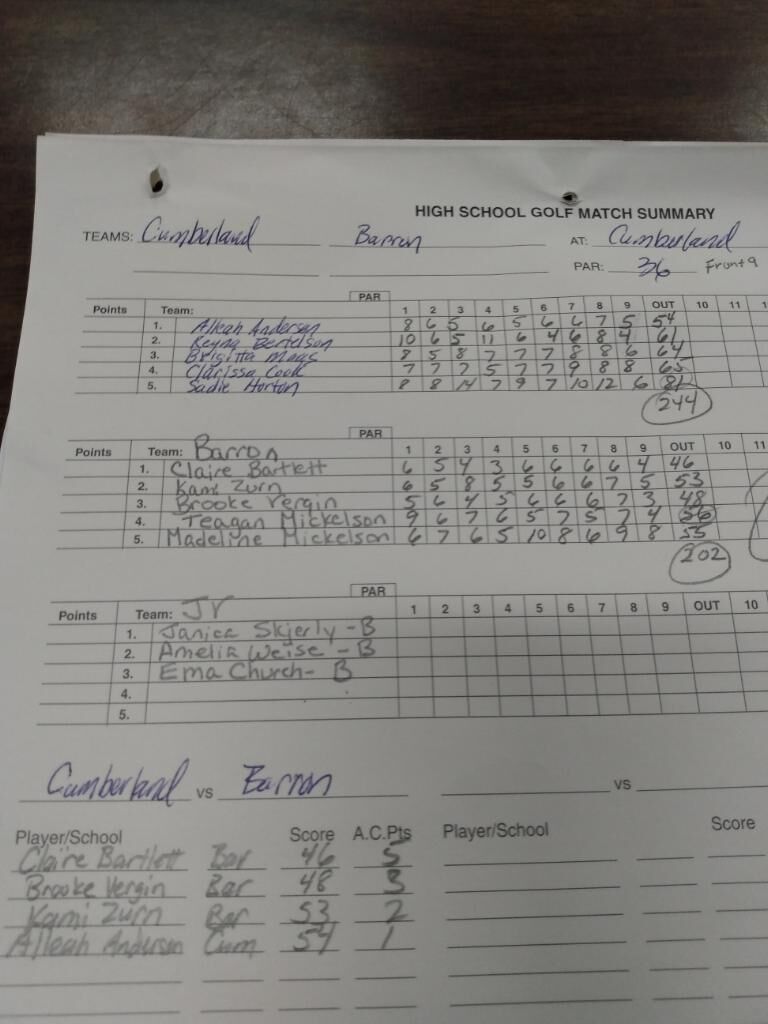 HIGH SCHOOL GOLF MATCH SUMMARY
TEAMS: Cumberland Barron AT: Cumberland
PAR: 36 Front 9
PAR
Points Team: 1 2 3 4 5 6 7 8 9 OUT 10 11 1
1. Alleah Anderson 8 6 5 6 5 6 6 7 5 54
2. Keyna Bertelson 10 6 5 11 6 4 6 8 4 61
3. Brigitta Maas 8 5 8 7 7 7 8 8 6 64
4. Clarissa Cook 7 7 7 5 7 7 9 8 8 65
5. Sadie Horton 8 8 14 7 9 7 10 12 6 81
244
PAR
Points Team: Barron 1 2 3 4 5 6 7 8 9 OUT 10 11
1. Claire Bartlett 6 5 4 3 6 6 6 6 4 46
2. Kami Zurn 6 5 8 5 5 6 6 7 5 53
3. Brooke Vergin 5 6 4 5 6 6 6 7 3 48
4. Teagan Mickelson 9 6 7 6 5 7 5 7 4 56
5. Madeline Mickelson 6 7 6 5 10 8 6 9 8 55
202
PAR
Points Team: JV 1 2 3 4 5 6 7 8 9 OUT 10
1. Janica Skjerly - B
2. Amelia Weise - B
3. Ema Church - B
4.
5.
Cumberland vs Barron vs
Player/School Score A.C.Pts Player/School Score
Claire Bartlett Bar 46 5
Brooke Vergin Bar 48 3
Kami Zurn Bar 53 2
Alleah Anderson Cum 54 1